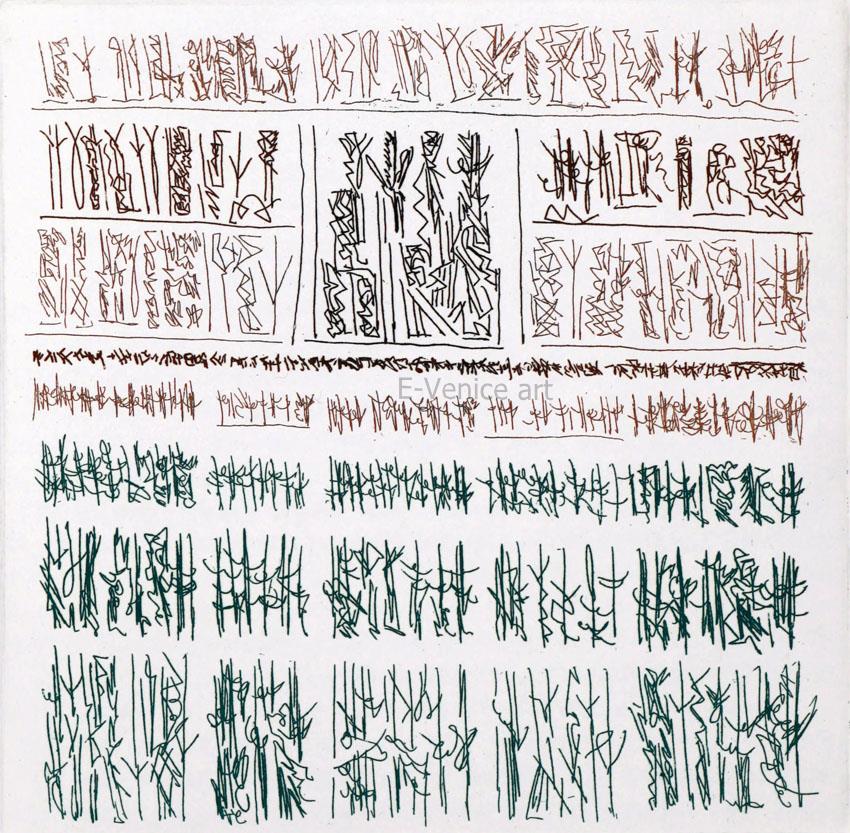 E-Venice art